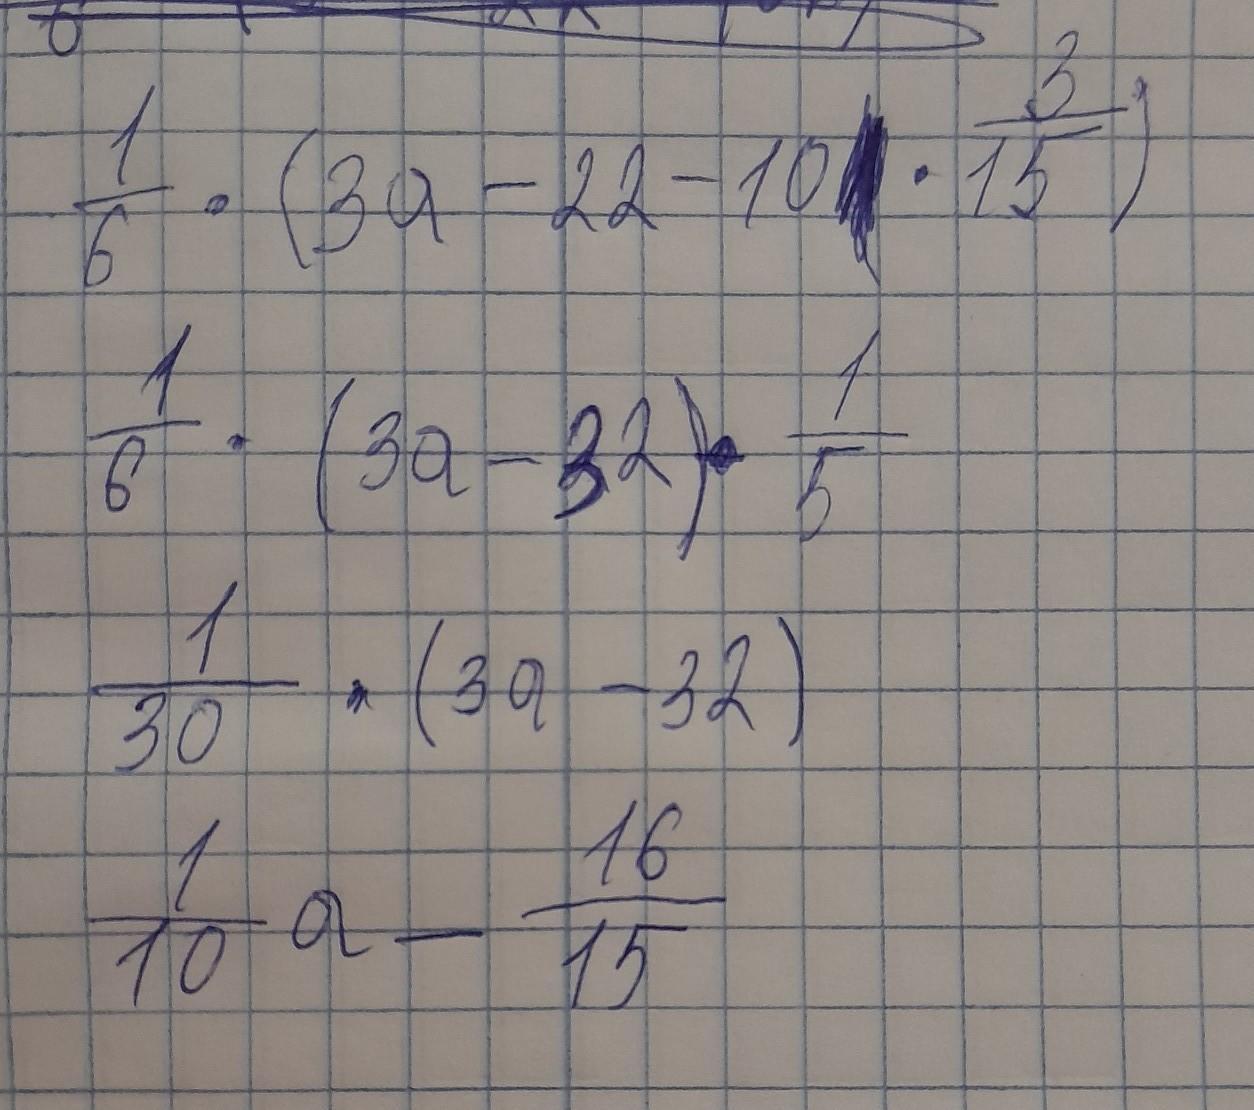 1/6 · (3a - 22 - 10 · 3/15)
1/6 · (3a - 32) · 1/5
1/30 · (3a - 32)
1/10 a - 16/15